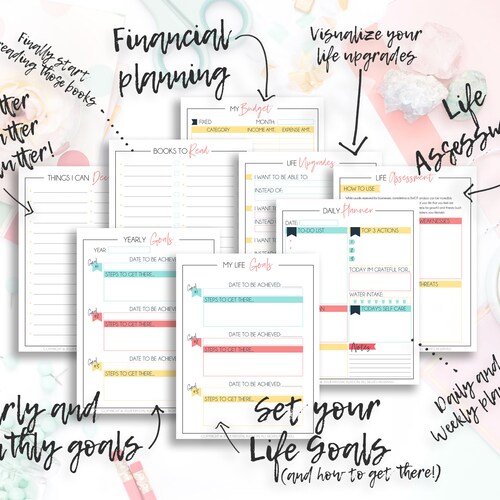 Finally start
reading those books
Financial
planning
Visualize your
life upgrades
Life
MY Budget
FIXED
MONTH:
CATEGORY
INCOME AMT.
EXPENSE AMT.
BOOKS TO Read
THINGS I CAN
LIFE Upgrades
I WANT TO BE ABLE TO:
INSTEAD OF:
I WANT
INSTEAD
I WANT
LIFE Assessment
HOW TO USE
WEAKNESSES
THREATS
DAILY Planner
DATE:
TO-DO LIST
TOP 3 ACTIONS
TODAY I'M GRATEFUL FOR...
WATER INTAKE:
TODAY'S SELF CARE
Notes
YEARLY Goals
YEAR:
DATE TO BE ACHIEVED:
STEPS TO GET THERE...
DATE TO BE ACHIEVED:
STEPS TO GET THERE...
DATE TO BE ACHIEVED:
STEPS TO GET THERE...
MY LIFE Goals
DATE TO BE ACHIEVED:
STEPS TO GET THERE...
DATE TO BE ACHIEVED:
STEPS TO GET THERE...
DATE TO BE ACHIEVED:
STEPS TO GET THERE...
Daily and
Weekly
and
goals
Set your
Life Goals
(and how to get there!)